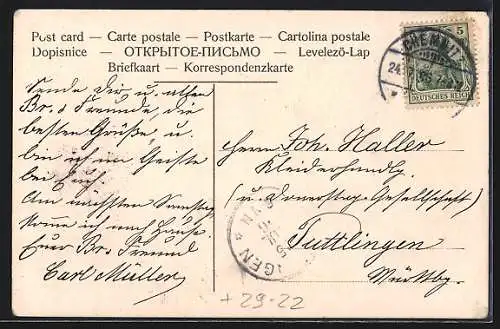 Post card — Carte postale — Postkarte — Cartolina postale
Dopisnice — ОТКРЫТОЕ-ПИСЬМО — Levelező-Lap
Briefkaart — Korrespondenzkarte
5
DEUTSCHES REICH
CHEMNITZ
24.
Sende Dir u. allen
Br. s Freunde, die
besten Grüße, u.
bin ich im Geiste
bei Euch.
Am nächsten Samstag
komme ich nach Hause
Euer Br. s Freund
Carl Müller
Herrn Joh. Haller
Kleiderhandlg.
(u. Donerstag-Gesellschaft)
Tuttlingen
Württbg.
NGEN
+ 29-22